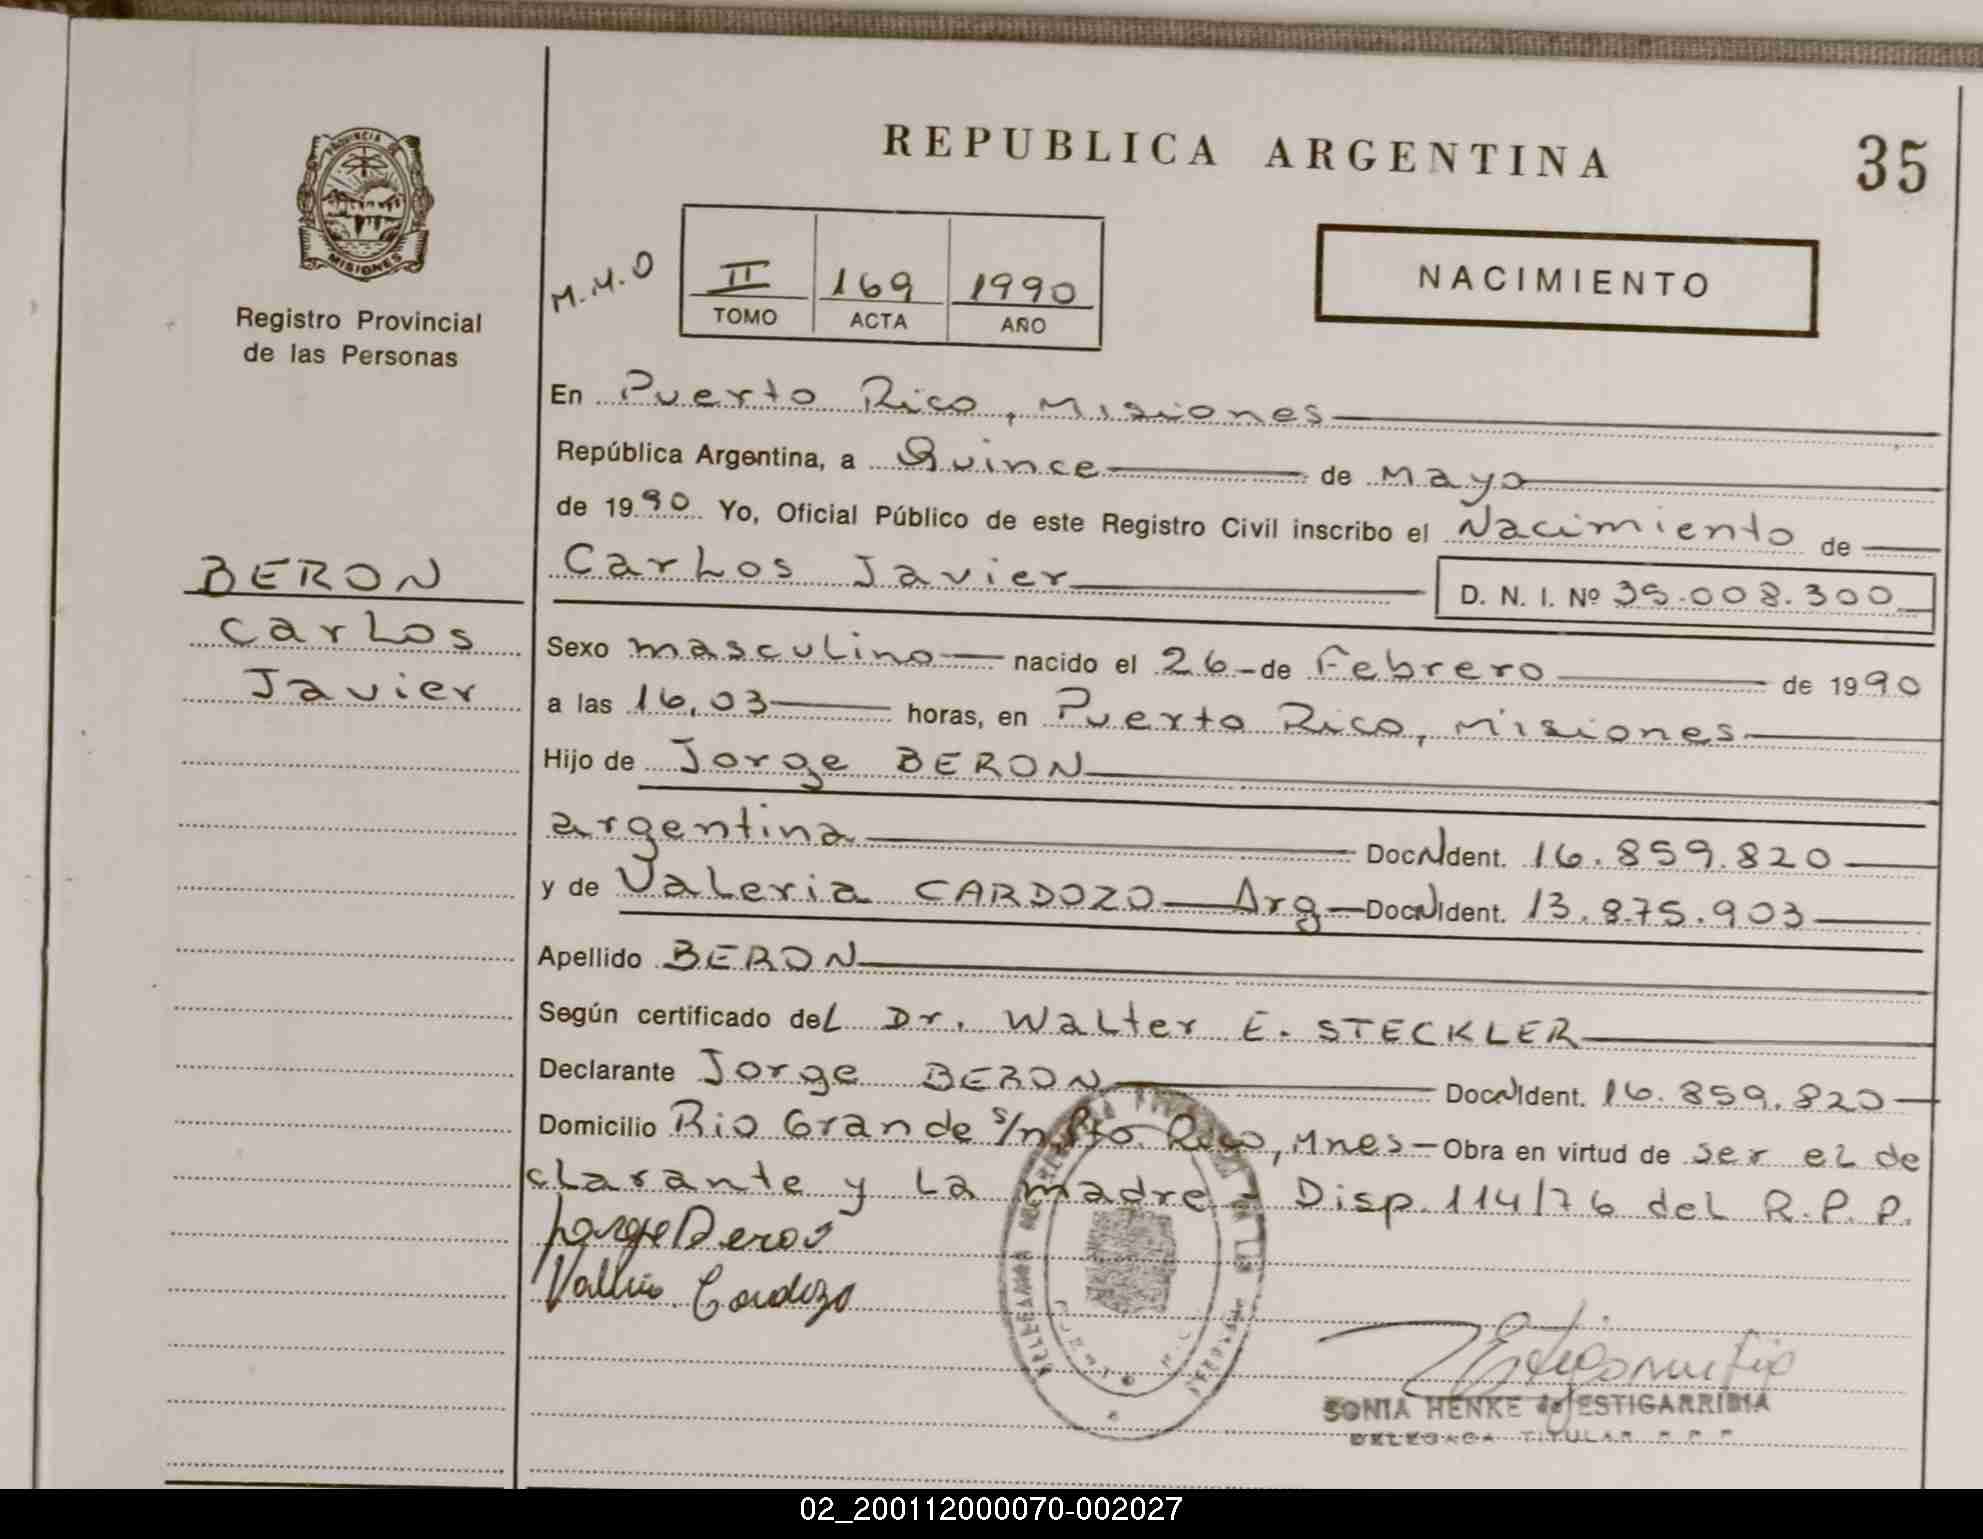 REPUBLICA ARGENTINA
35
PROVINCIA DE
MISIONES
Registro Provincial
de las Personas
M.M.O
II 169 1990
TOMO ACTA AÑO
NACIMIENTO
En Puerto Rico, Misiones
República Argentina, a Quince de Mayo
de 1990 Yo, Oficial Público de este Registro Civil inscribo el Nacimiento de
Carlos Javier D. N. I. Nº 35.008.300
BERON
Carlos
Javier
Sexo masculino nacido el 26 de Febrero de 1990
a las 16,03 horas, en Puerto Rico, Misiones
Hijo de Jorge BERON
argentina DocNIdent. 16.859.820
y de Valeria CARDOZO Arg DocNIdent. 13.875.903
Apellido BERON
Según certificado del Dr. Walter E. STECKLER
Declarante Jorge BERON DocNIdent. 16.859.820
Domicilio Rio Grande s/n, Pto. Rico, Mnes Obra en virtud de ser el de
clarante y la madre Disp. 114/76 del R.P.P.
Jorge Beron
Valeria Cardozo
SONIA HENKE de ESTIGARRIBIA
DELEGADA TITULAR R.P.P
02_200112000070-002027